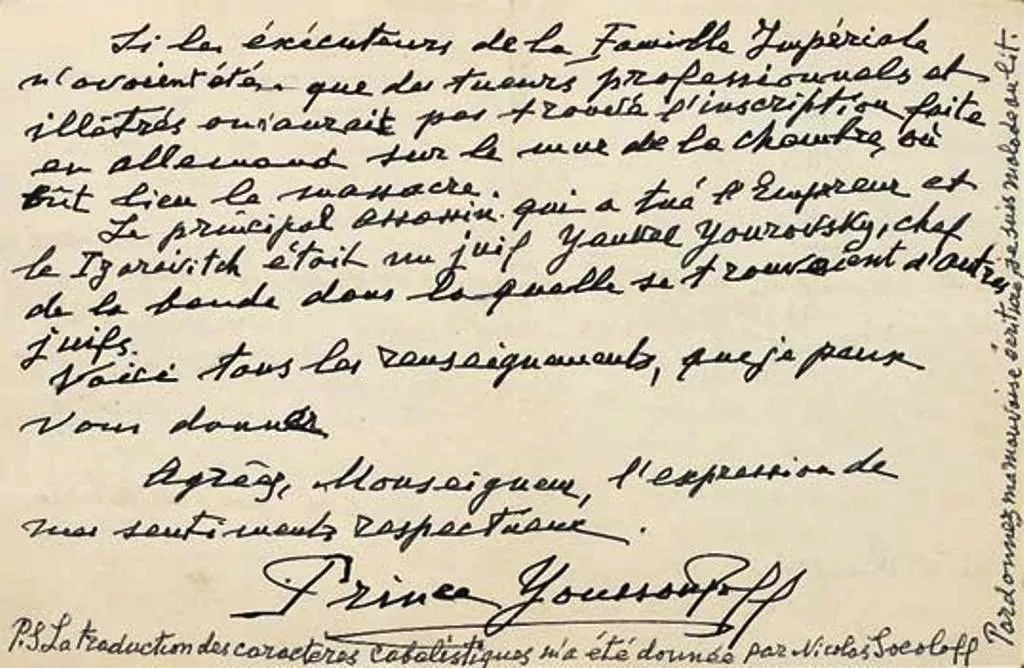 Si les éxécuteurs de la Famille Impériale
n'avaient été que des tueurs professionnels et
illétrés on n'aurait pas trouvé l'inscription faite
en allemand sur le mur de la chambre, où
eût lieu le massacre.
Le principal assassin qui a tué l'Empereur et
le Tzarevitch était un juif Yankel Yourovsky, chef
de la bande dans laquelle se trouvaient d'autres
juifs.
Voici tous les renseignements, que je peux
vous donner
Agréez, Monseigneur, l'expression de
mes sentiments respectueux.
Prince Youssoupoff
P.S. La traduction des caractères cabalistiques m'a été donnée par Nicolas Socoloff
Pardonnez ma mauvaise écriture, je suis malade au lit.